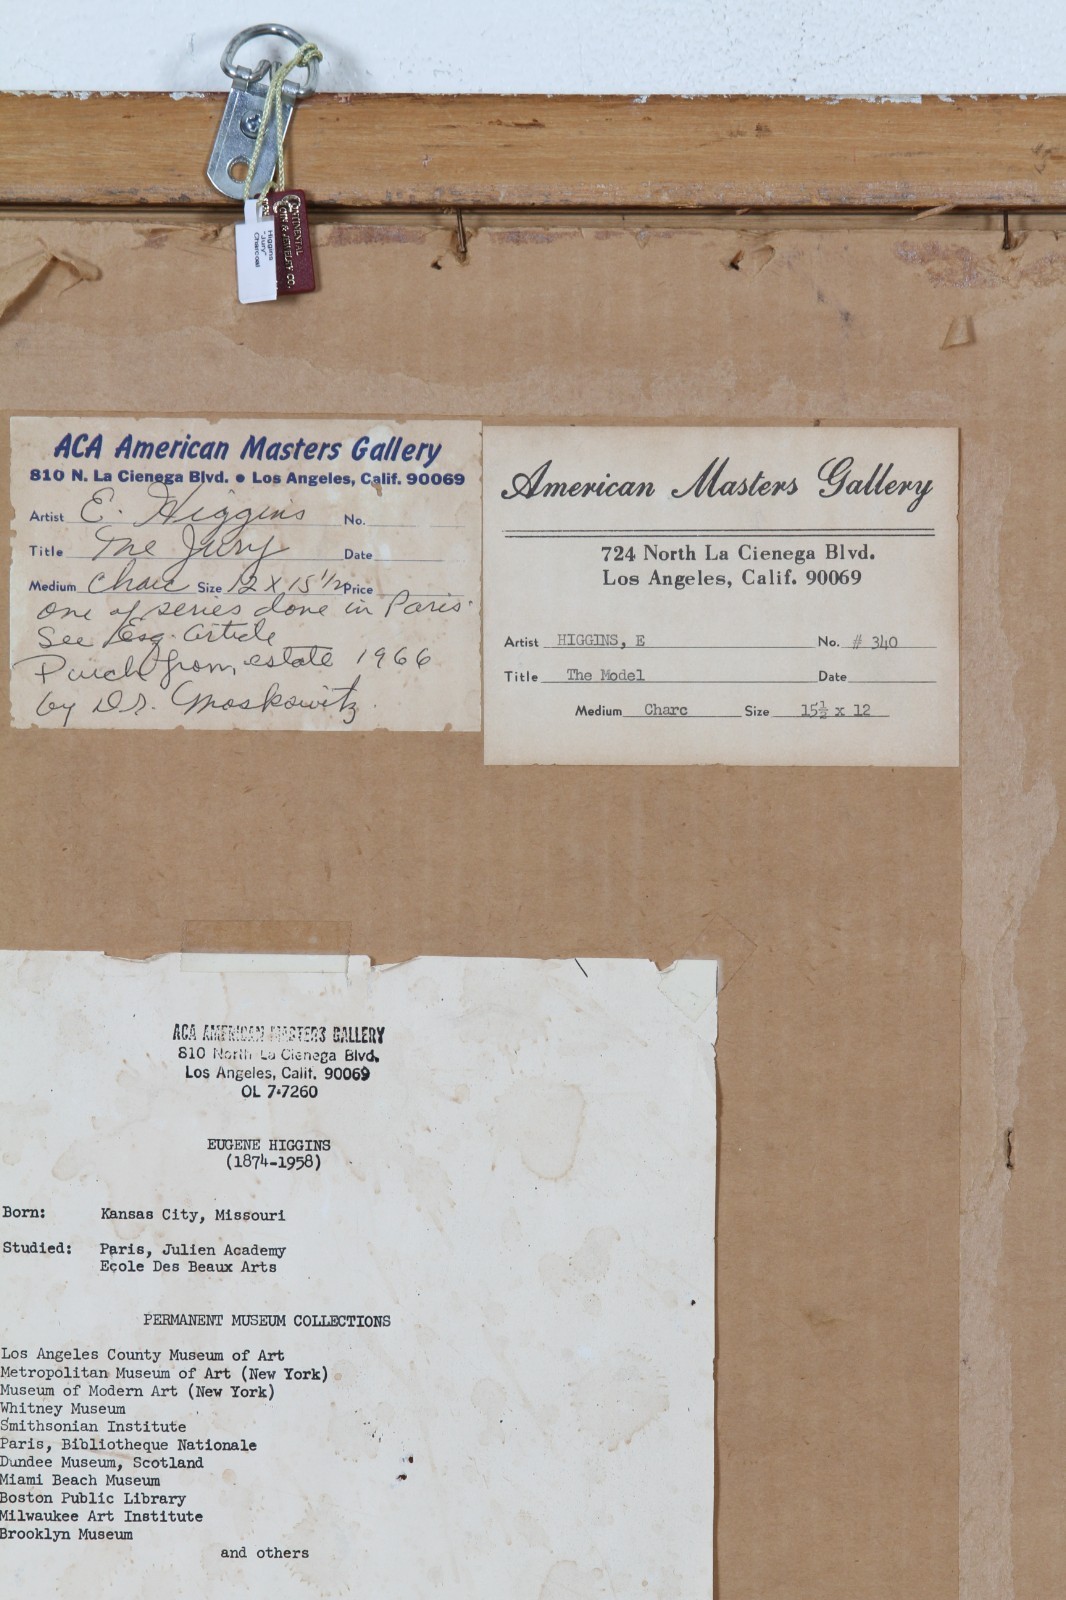 CONTINENTAL
COIN & JEWELRY CO.
Higgins
"Jury"
Charcoal
ACA American Masters Gallery
810 N. La Cienega Blvd. • Los Angeles, Calif. 90069
Artist E. Higgins No.
Title The Jury Date
Medium Charc Size 12 x 15 1/2 Price
one of series done in Paris.
See Esq. article
Purch from estate 1966
by Dr. Moskowitz.
American Masters Gallery
724 North La Cienega Blvd.
Los Angeles, Calif. 90069
Artist HIGGINS, E No. # 340
Title The Model Date
Medium Charc Size 15½ x 12
ACA AMERICAN MASTERS GALLERY
810 North La Cienega Blvd.
Los Angeles, Calif. 90069
OL 7-7260
EUGENE HIGGINS
(1874-1958)
Born: Kansas City, Missouri
Studied: Paris, Julien Academy
Ecole Des Beaux Arts
PERMANENT MUSEUM COLLECTIONS
Los Angeles County Museum of Art
Metropolitan Museum of Art (New York)
Museum of Modern Art (New York)
Whitney Museum
Smithsonian Institute
Paris, Bibliotheque Nationale
Dundee Museum, Scotland
Miami Beach Museum
Boston Public Library
Milwaukee Art Institute
Brooklyn Museum
and others